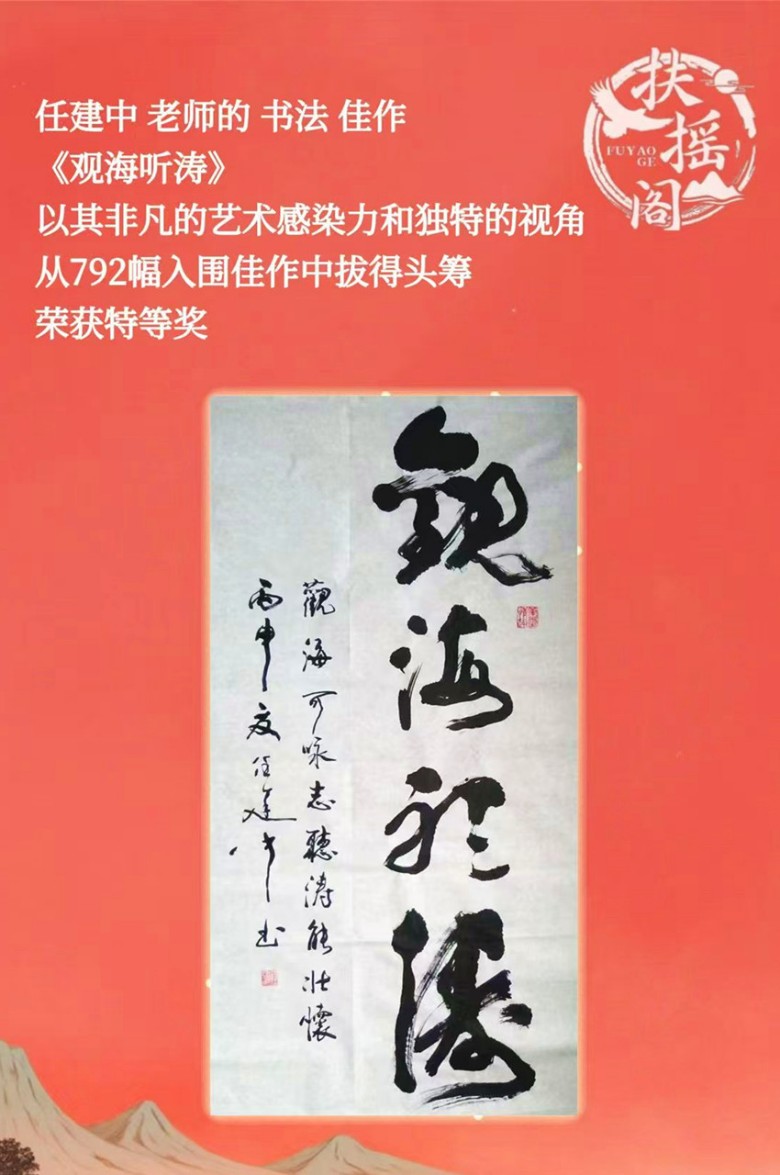 任建中 老师的 书法 佳作
《观海听涛》
以其非凡的艺术感染力和独特的视角
从792幅入围佳作中拔得头筹
荣获特等奖
扶摇阁
FUYAO
GE
觀海聽濤
觀海可咏志聽濤能壮懷
丙申夏任建中书